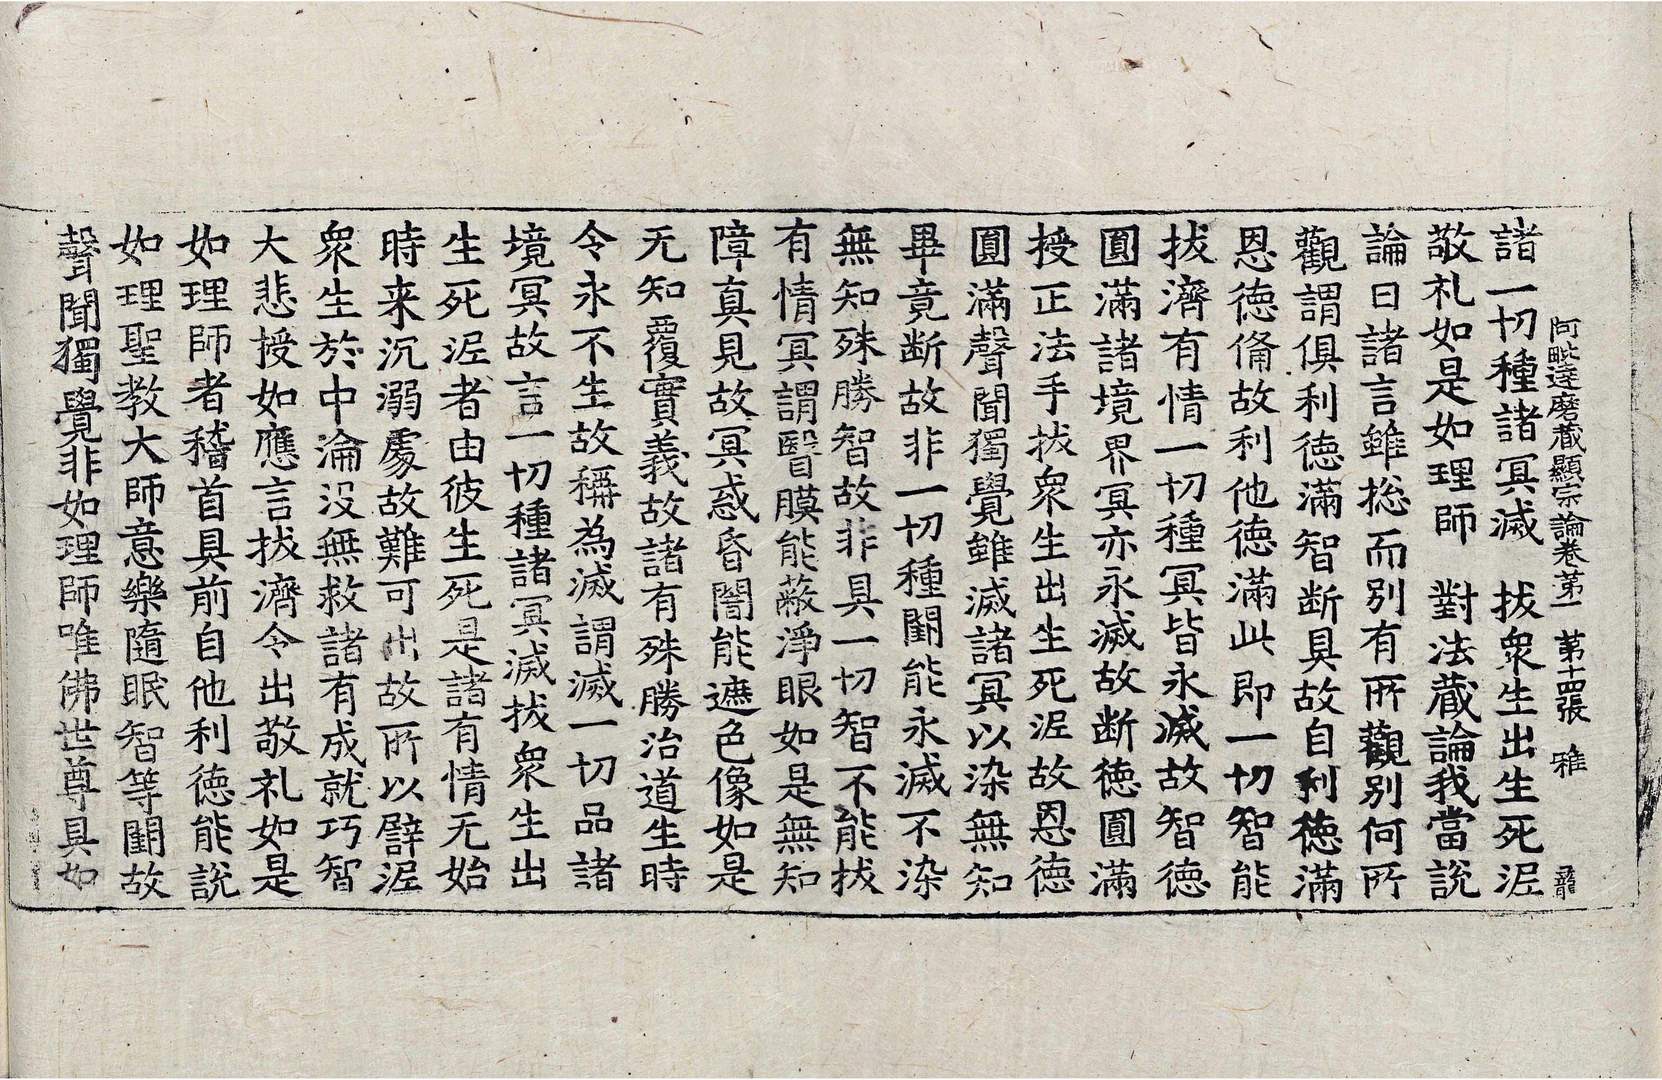 阿毗達磨藏顯宗論卷第一 第十四張 雅
諸一切種諸冥滅 拔衆生出生死泥
敬礼如是如理師 對法藏論我當說
論曰諸言雖捴而別有所觀別何所
觀謂俱利德滿智斷具故自利德滿
恩德俻故利他德滿此即一切智能
拔濟有情一切種冥皆永滅故智德
圓滿諸境界冥亦永滅故斷德圓滿
授正法手拔衆生出生死泥故恩德
圓滿聲聞獨覺雖滅諸冥以染無知
畢竟斷故非一切種闕能永滅不染
無知殊勝智故非具一切智不能拔
有情冥謂翳膜能蔽淨眼如是無知
障真見故冥惑昏闇能遮色像如是
无知覆實義故諸有殊勝治道生時
令永不生故稱為滅謂滅一切品諸
境冥故言一切種諸冥滅拔衆生出
生死泥者由彼生死是諸有情无始
時来沉溺處故難可出故所以譬泥
衆生於中淪没無救諸有成就巧智
大悲授如應言拔濟令出敬礼如是
如理師者稽首具前自他利德能說
如理聖教大師意樂隨眠智等闕故
聲聞獨覺非如理師唯佛世尊具如